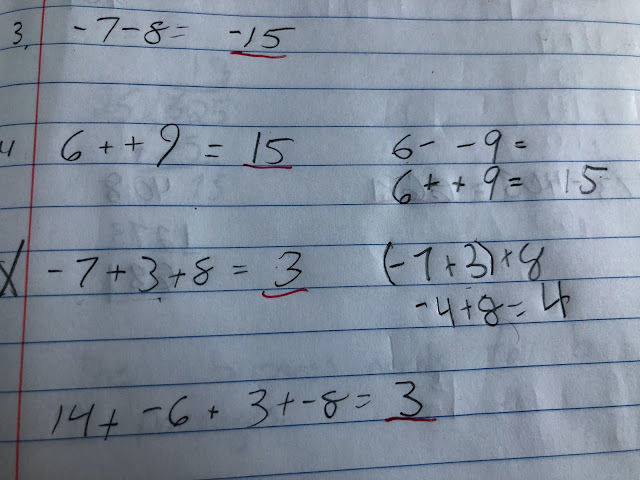 3. -7-8= -15
4 6 + + 9 = 15
6 - - 9 =
6 + + 9 = 15
X -7+3+8 = 3
(-7+3)+8
-4+8=4
14+ -6 + 3+-8= 3